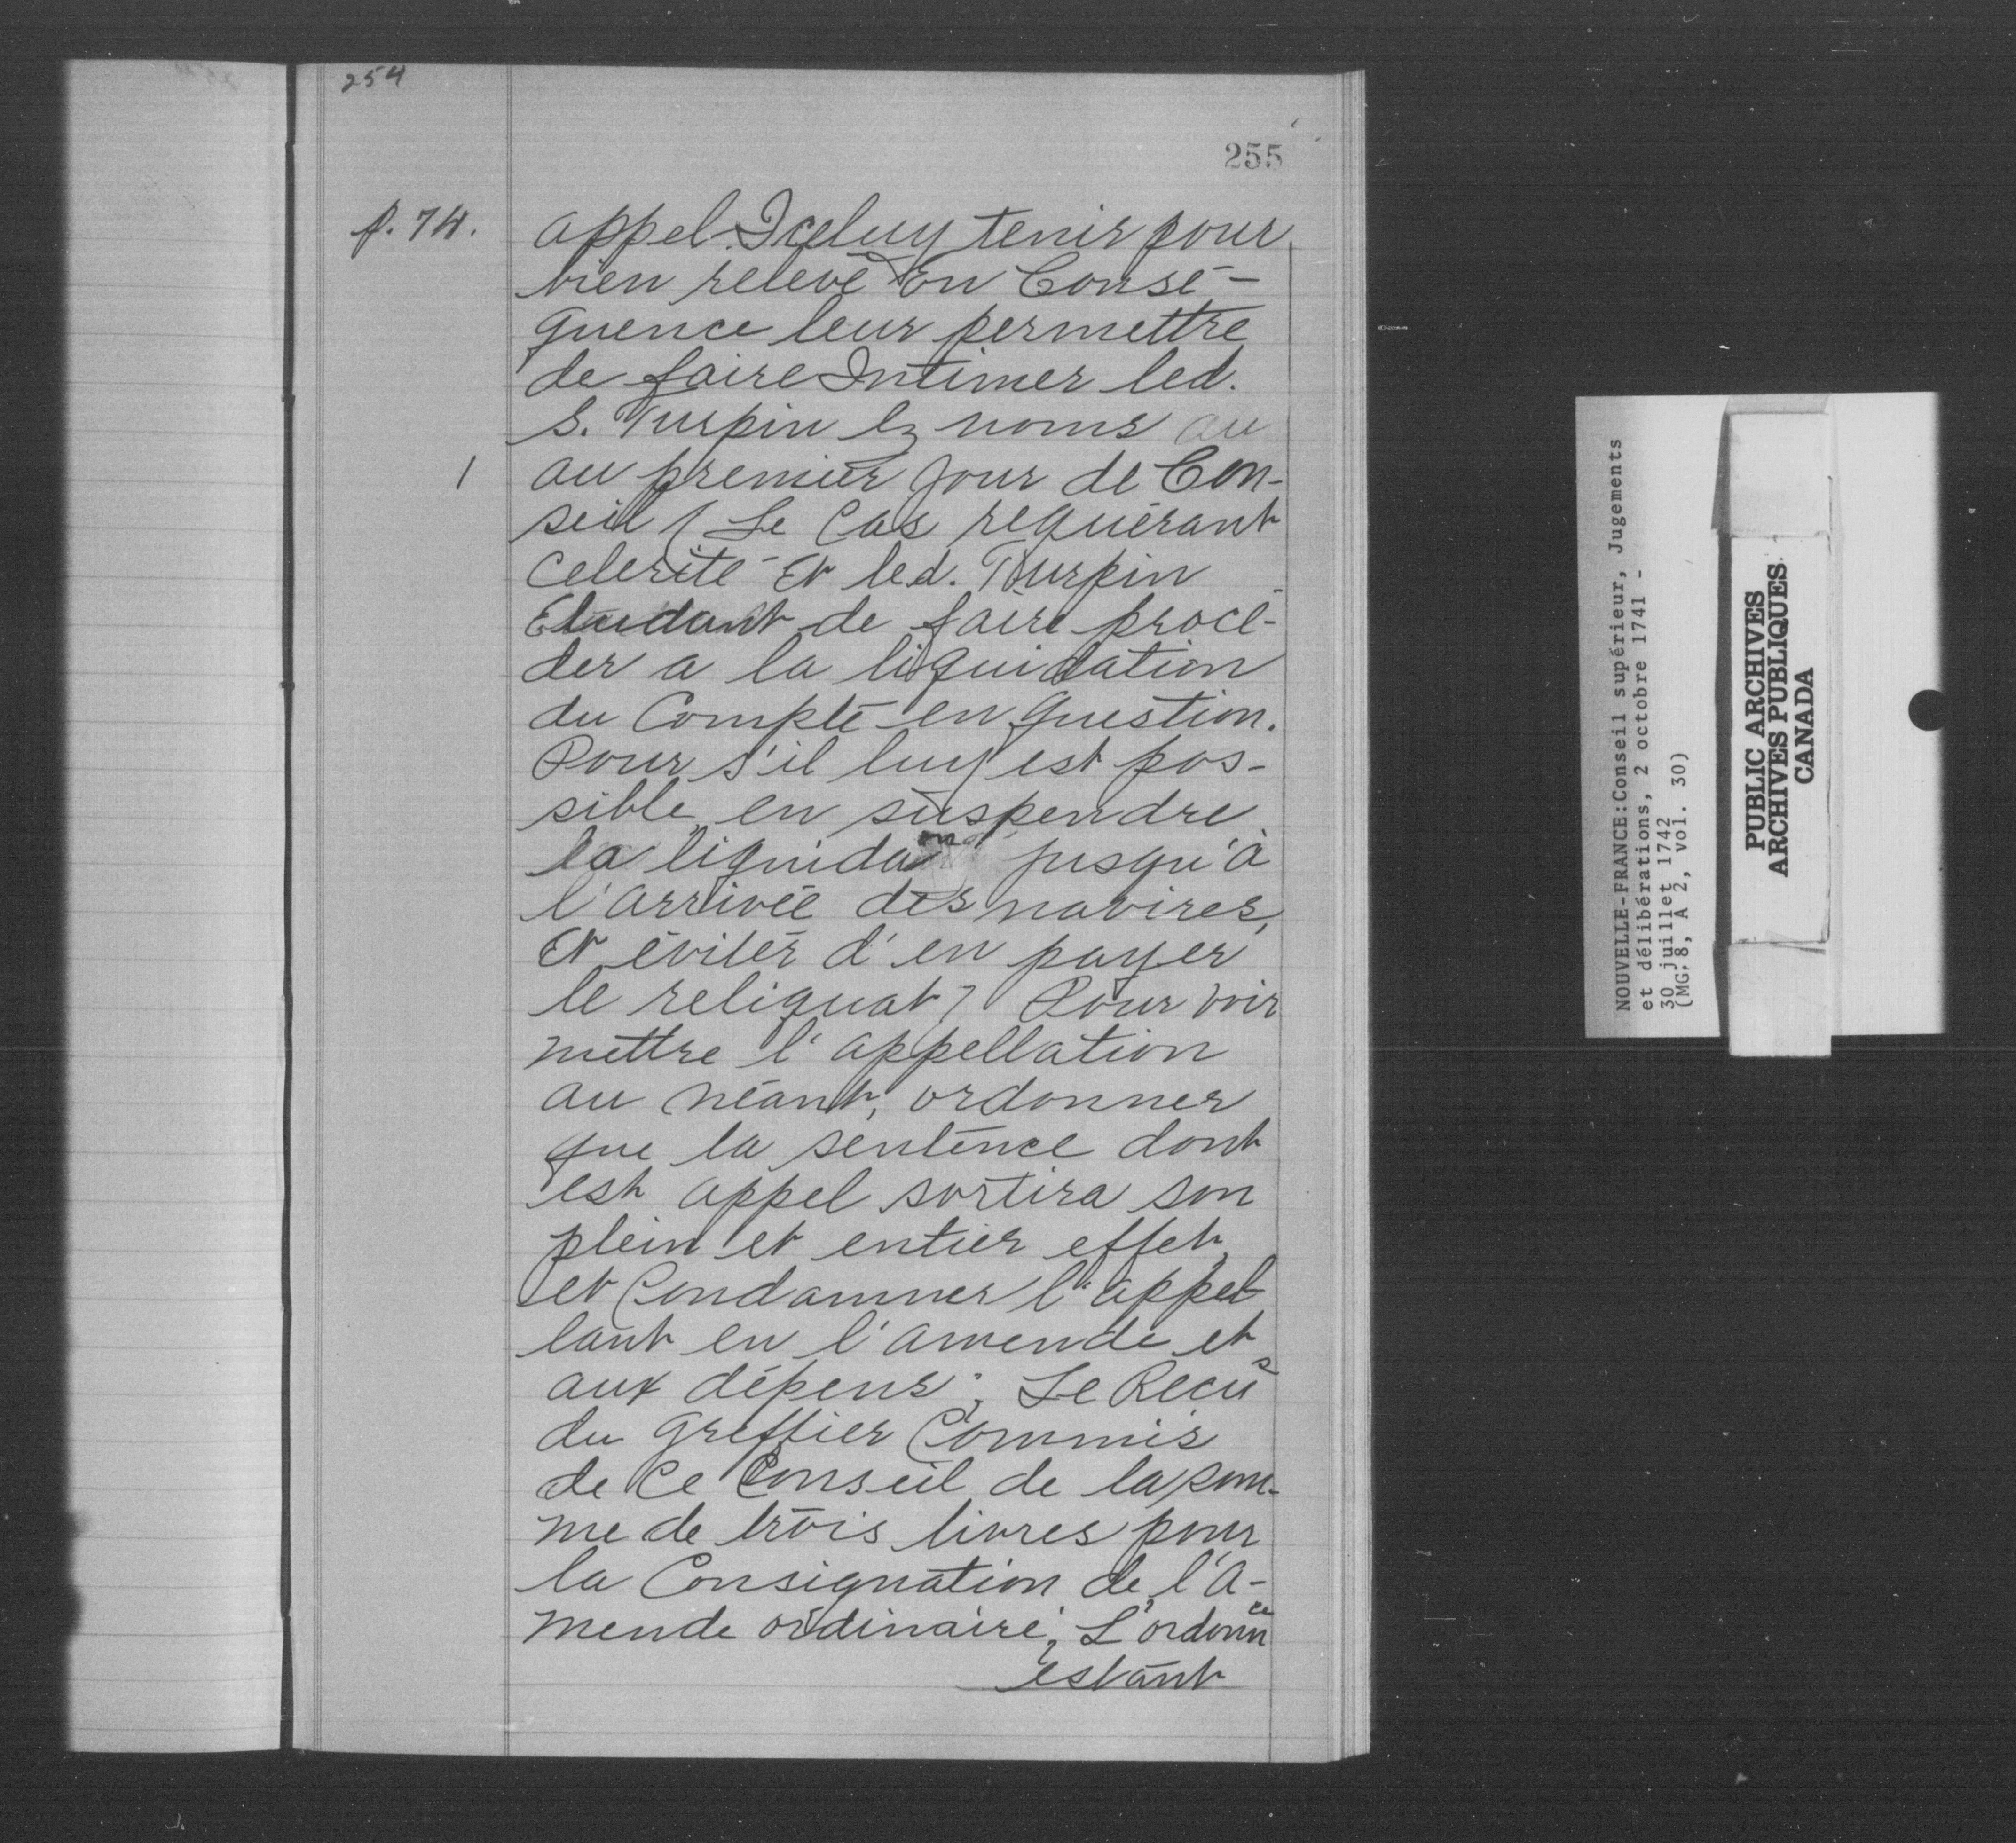 254
255
f. 74.
appel Iceluy tenir pour
bien relevé En Consé-
quence leur permettre
de faire Intimer led.
S. Turpin ez noms au
1
au premier jour de Con-
seil ( Le Cas requérant
Celerité Et led. Turpin
Eludant de faire procé-
der a la liquidation
du Compte en question.
Pour s'il luy est pos-
sible en suspendre
la liquidaon jusqu'à
l'arrivée des navires,
Et éviter d'en payer
le reliquat) Pour voir
mettre l'appellation
au néant, ordonner
que la sentence dont
est appel sortira son
plein et entier effet,
et Condamner l'appel-
lant en l'amende et
aux dépens; Le Recus
du greffier Commis
de Ce Conseil de la som-
me de trois livres pour
la Consignation de l'a-
mende ordinaire; L'ordonnce
estant
NOUVELLE-FRANCE:Conseil supérieur, Jugements
et délibérations, 2 octobre 1741 -
30 juillet 1742
(MG. 8, A 2, vol. 30)
PUBLIC ARCHIVES
ARCHIVES PUBLIQUES
CANADA